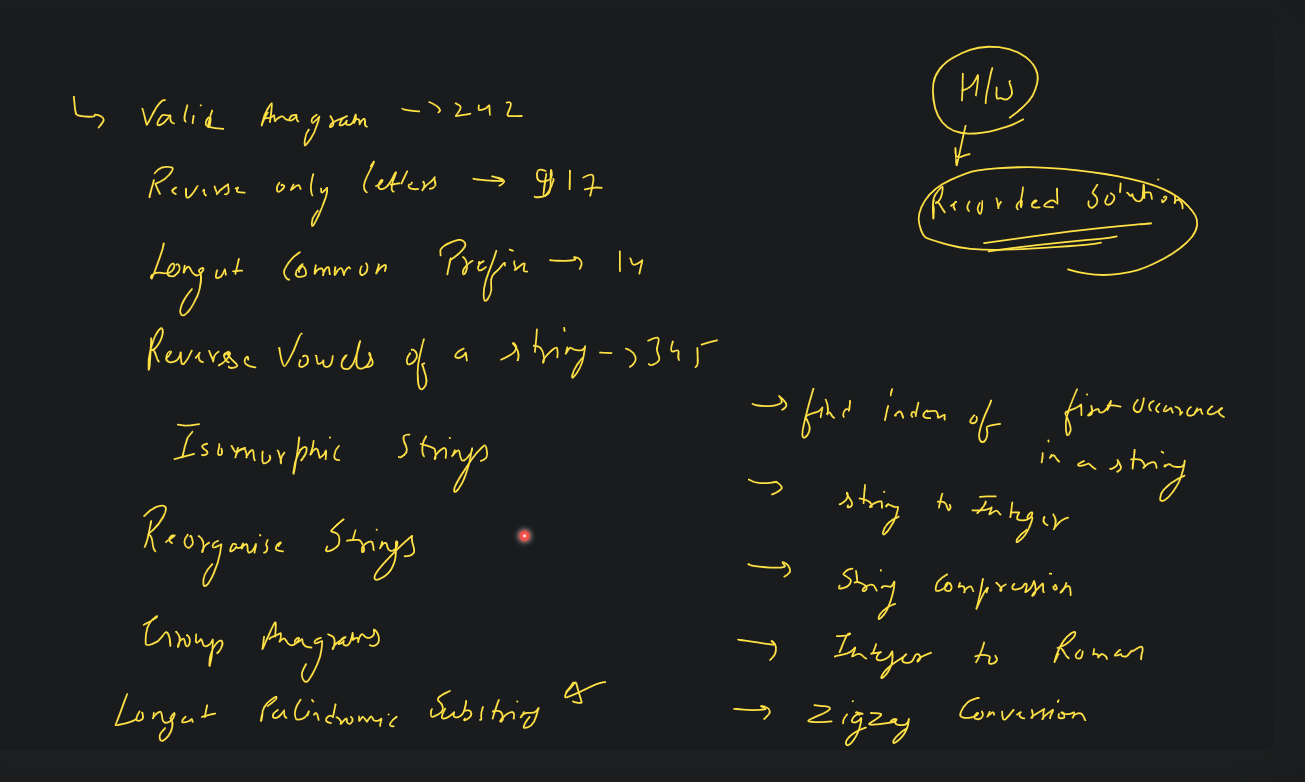 ↳ Valid Anagram -> 242
Reverse only letters → 917
Longest Common Prefix → 14
Reverse Vowels of a string -> 345
Isomorphic Strings
Reorganise Strings
Group Anagrams
Longest Palindromic Substring ☆
H/W
Recorded Solution
→ find index of first occurence
in a string
→ string to Integer
→ String Compression
→ Integer to Roman
→ Zigzag Conversion